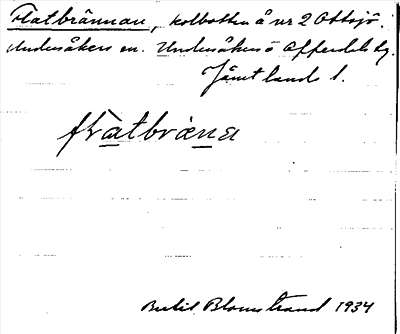 Flatbrännan, kolbotten å nr 2 Ottsjö.
Undersåkers sn. Undersåkers o Offerdals tg.
Jämtlands l.
flatbræna
Bertil Blomstrand 1934